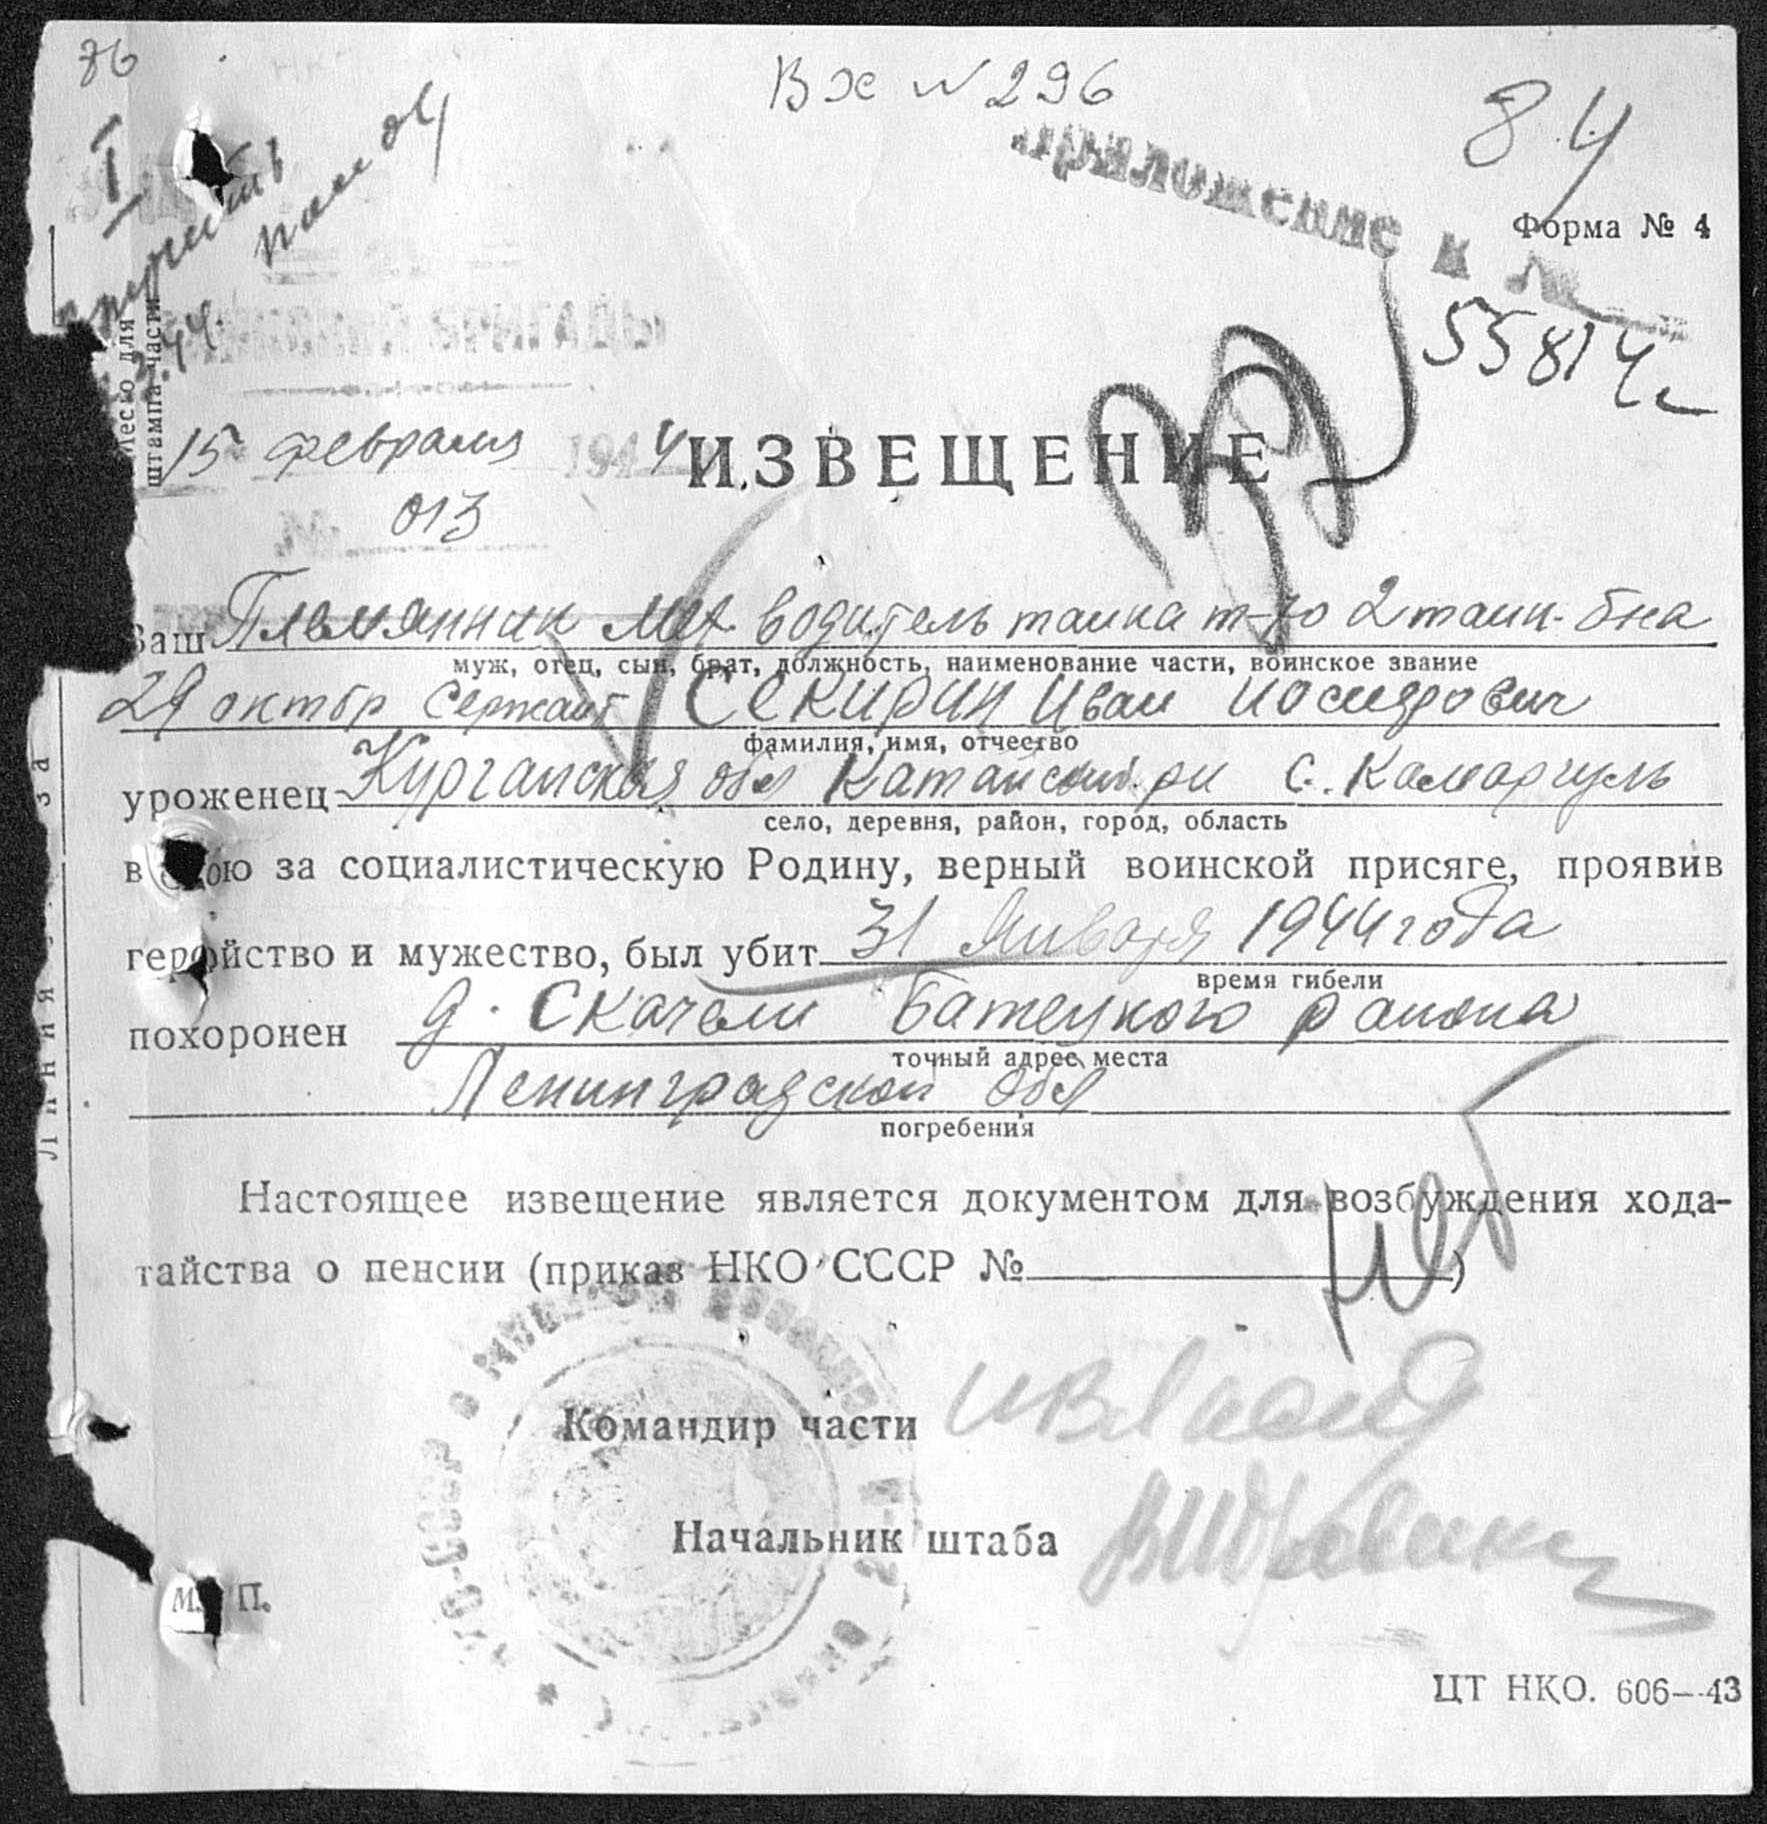 86
Вх № 296
84
Приложение к №
Форма № 4
55814с
Место для
штампа части
15 февраля 1944
ИЗВЕЩЕНИЕ
013
Ваш Племянник мех. водитель танка т-70 2 танк. б-на
муж, отец, сын, брат, должность, наименование части, воинское звание
29 октбр сержант Секирин Иван Иосифович
фамилия, имя, отчество
уроженец Курганская обл Катайский р-н с.
село, деревня, район, город, область
в бою за социалистическую Родину, верный воинской присяге, проявив
геройство и мужество, был убит 31 Января 1944 года
время гибели
похоронен д. Скачели Батецкого района
точный адрес места
Ленинградской обл
погребения
Настоящее извещение является документом для возбуждения хода-
тайства о пенсии (приказ НКО СССР № )
Командир части
Начальник штаба
М. П.
ЦТ НКО. 606—43
Линия за